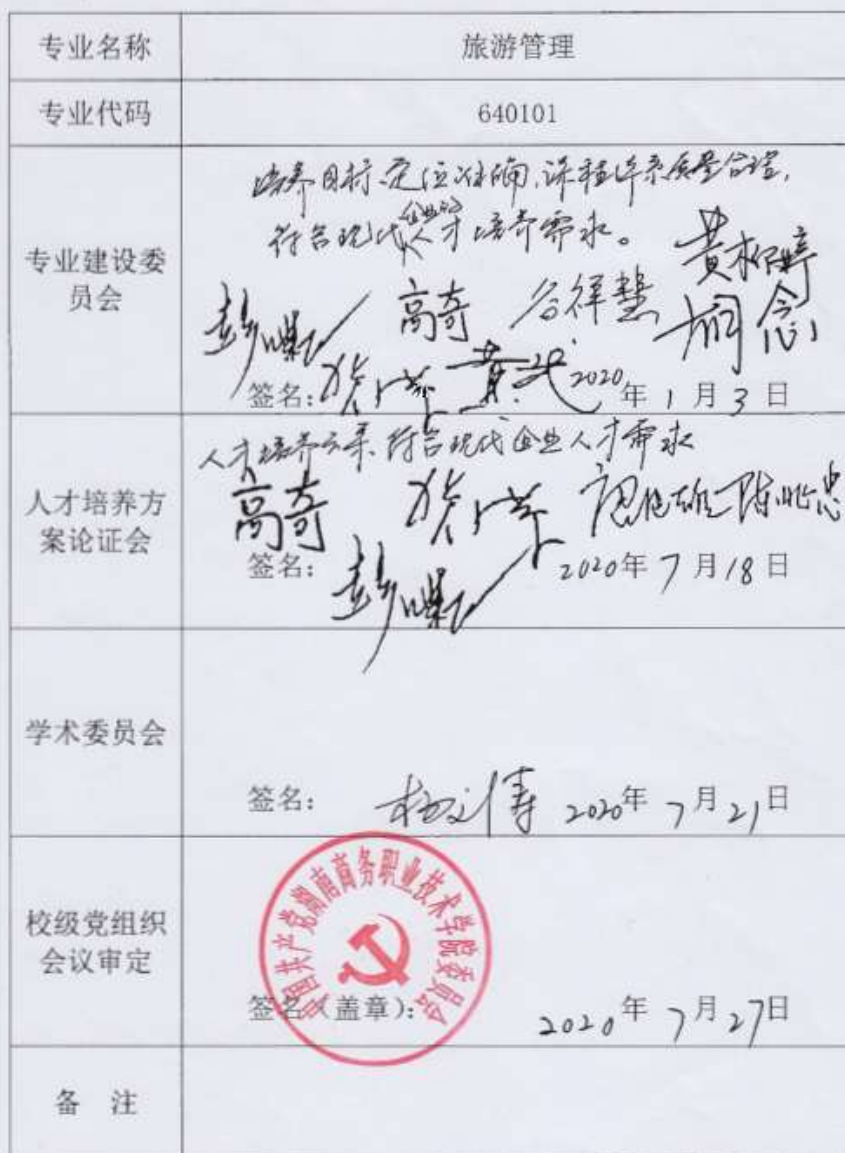 专业名称
旅游管理
专业代码
640101
专业建设委
员会
培养目标定位准确,课程体系质量合理,
符合现代企业的人才培养需求。
黄柳婷
高奇
谷祥慧
签名:
2020年1月3日
人才培养方
案论证会
人才培养方案,符合现代企业人才需求
高奇
签名:
2020年7月18日
学术委员会
签名:
2020年7月21日
校级党组织
会议审定
中国共产党湖南商务职业技术学院委员会
签名(盖章):
2020年7月27日
备 注